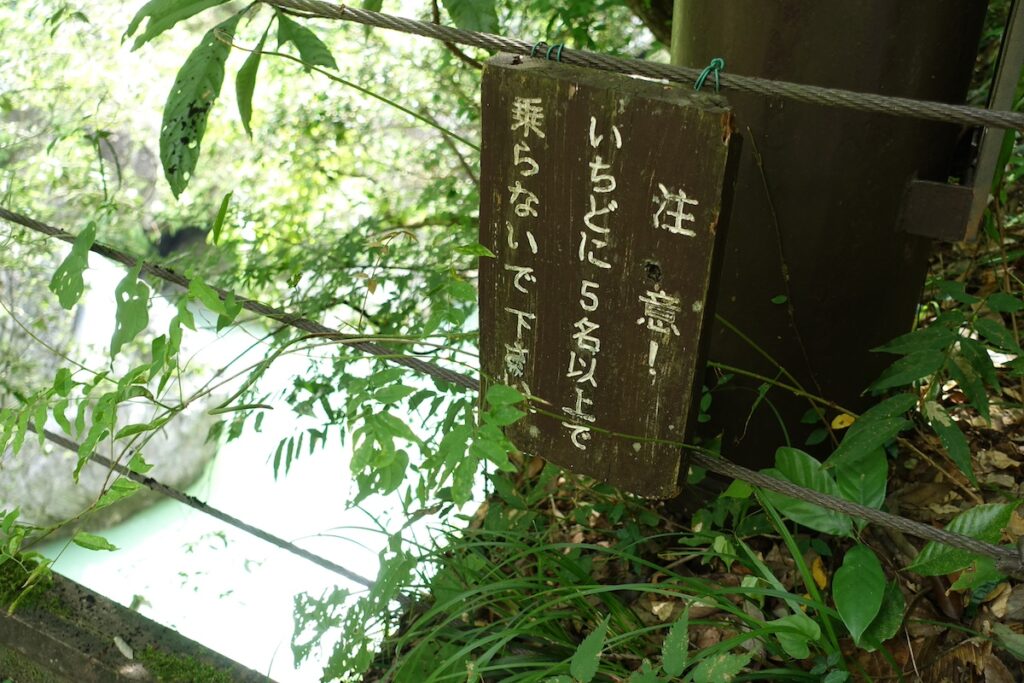 注意!
いちどに5名以上で
乗らないで下さい